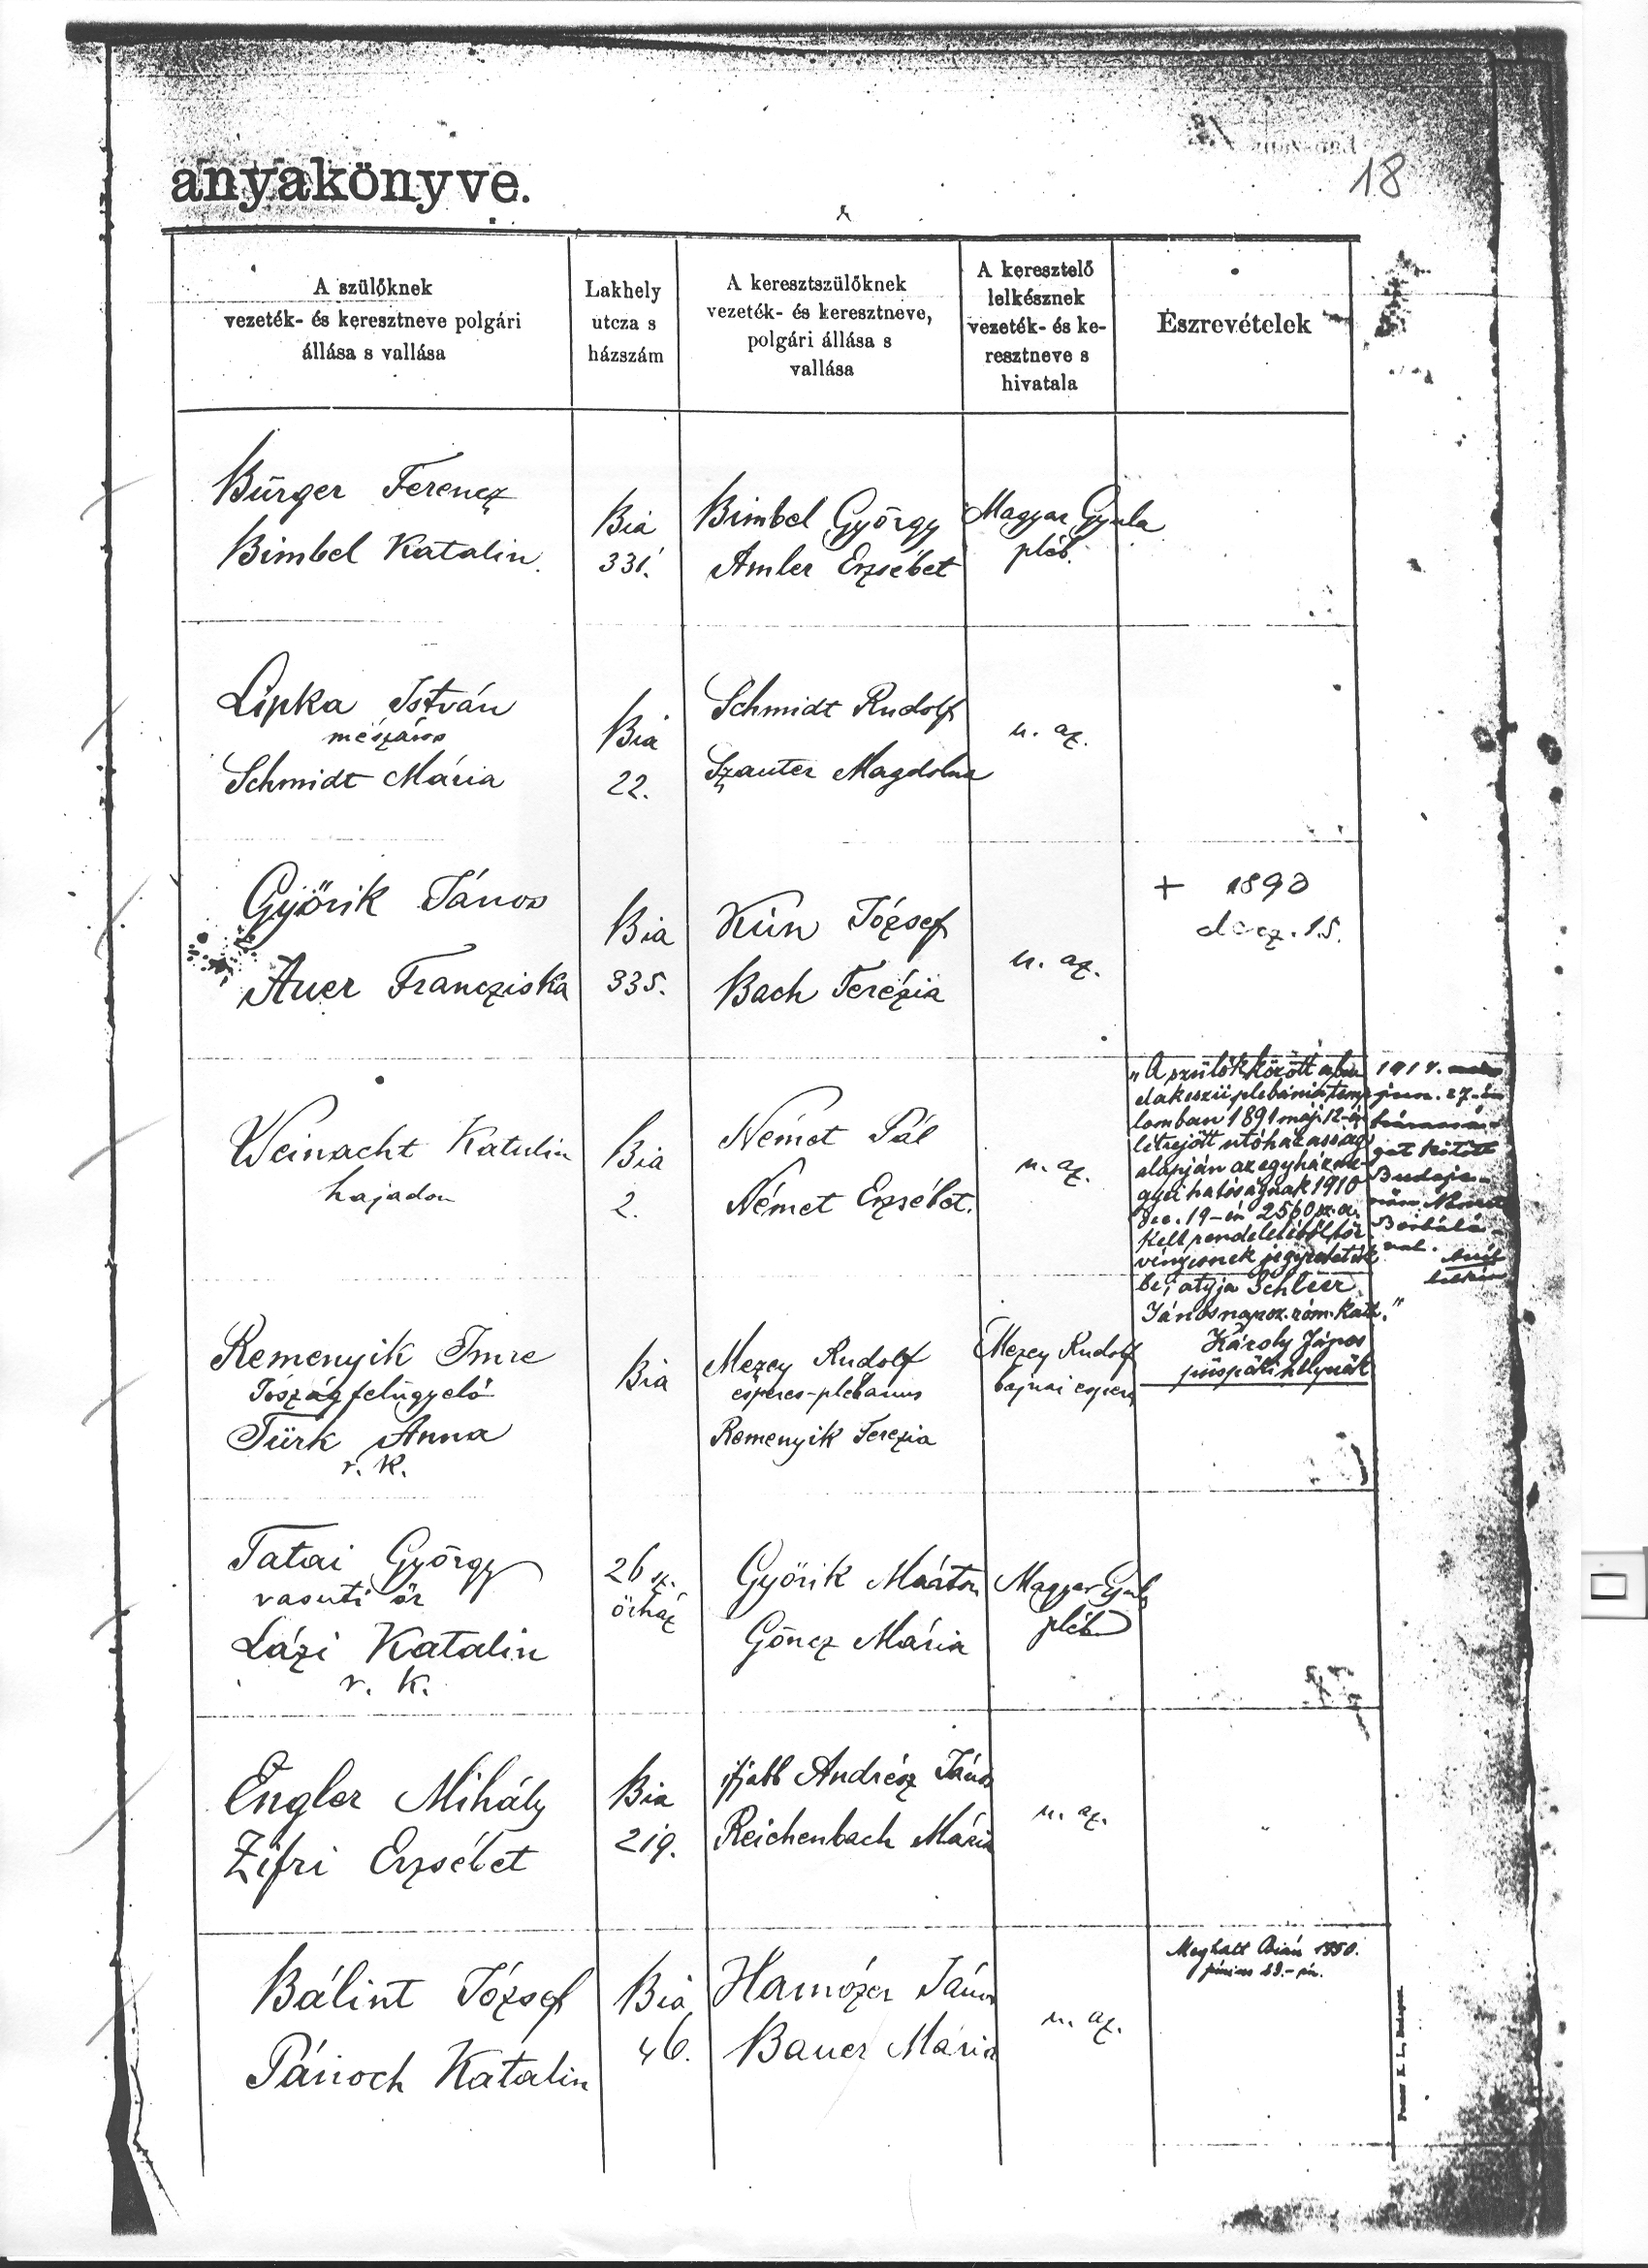 18
anyakönyve.
A szülőknek
vezeték- és keresztneve polgári
állása s vallása
Lakhely
utcza s
házszám
A keresztszülőknek
vezeték- és keresztneve,
polgári állása s
vallása
A keresztelő
lelkésznek
vezeték- és ke-
resztneve s
hivatala
Észrevételek
Bürger Ferencz
Bimbel Katalin.
Bia
331.
Bimbel György
Amler Erzsébet
Magyar Gyula
pléb.
Lipka István
mészáros
Schmidt Mária
Bia
22.
Schmidt Rudolf
Szauter Magdolna
u. az.
Győrik János
Auer Francziska
Bia
335.
Kún József
Bach Terézia
u. az.
+ 1890
decz. 15.
Weinacht Katalin
hajadon
Bia
2.
Német Pál
Német Erzsébet.
u. az.
„A szülők között a bu-
dakeszii plebánia temp-
lomban 1891 máj. 12-én
létrejött utóházasság
alapján az egyházme-
gyei hatóságnak 1910
dec. 19-én 2560 sz. a.
kelt rendeletéből tör-
vényesnek jegyeztetik
be; atyja Schleer
János napsz. róm. kath."
Károly János
püspöki helynök
jun. 27-én
got kötött
Budape-
Borbálá-
val.
Remenyik Imre
Jószágfelügyelő
Türk Anna
r. k.
Bia
Mezey Rudolf
esperes-plebanus
Remenyik Terezia
Mezey Rudolf
bajnai esperes
Tatai György
vasuti őr
Lázi Katalin
r. k.
26 sz.
őrház
Győrik Márton
Göncz Mária
Magyar Gyula
pléb
Engler Mihály
Zifri Erzsébet
Bia
219.
ifjabb Andrész János
Reichenbach Mária
u. az.
Bálint József
Párioch Katalin
Bia
46.
Hamózer János
Bauer Mária
u. az.
Meghalt Bián 1950.
június 29.-én.